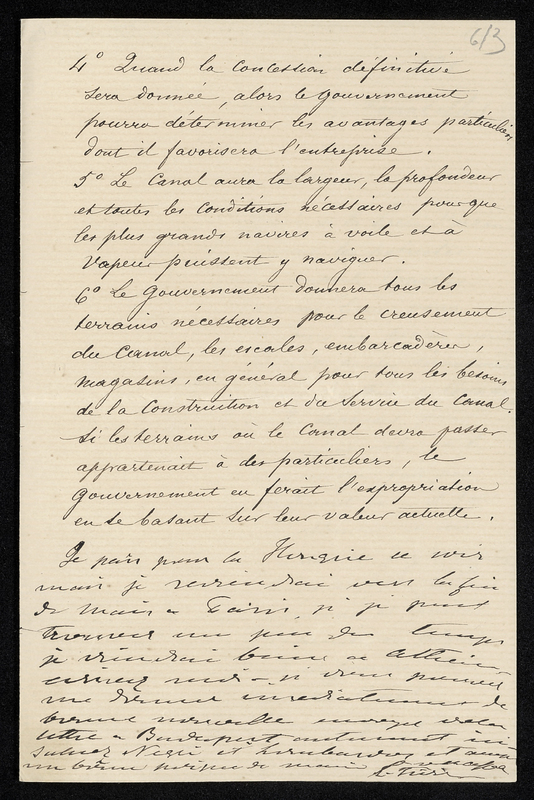 613
4° Quand la Concession définitive
sera donnée, alors le gouvernement
pourra déterminer les avantages particuliers
dont il favorisera l'entreprise.
5° Le Canal aura la largeur, la profondeur
et toutes les Conditions nécessaires pour que
les plus grands navires à voile et à
Vapeur puissent y naviguer.
6° Le Gouvernement donnera tous les
terrains nécessaires pour le creusement
du Canal, les escales, embarcadères,
magasins, en général pour tous les besoins
de la Construction et du Service du Canal.
Si les terrains où le Canal devra passer
appartenait à des particuliers, le
gouvernement en ferait l'expropriation
en se basant sur leur valeur actuelle.
Je pars pour la Hongrie ce soir
mais je reviendrai vers la fin
de mars a Paris, si je peux
trouver un peu de temps
je viendrai
si vous pouvez
me donner
bonne nouvelle envoyez votre
lettre a Budapest autrement ici
Saluez Negri et et
un bonne poignee de main